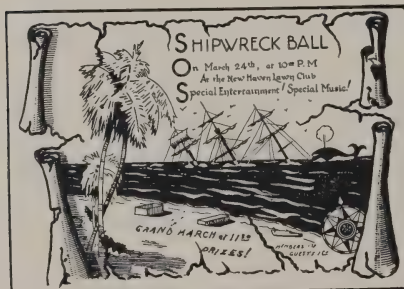 SHIPWRECK BALL
On March 24th, at 10 00 P.M
At the New Haven Lawn Club
Special Entertainment! Special Music!
GRAND MARCH at 11 30
PRIZES!
MEMBERS
GUESTS